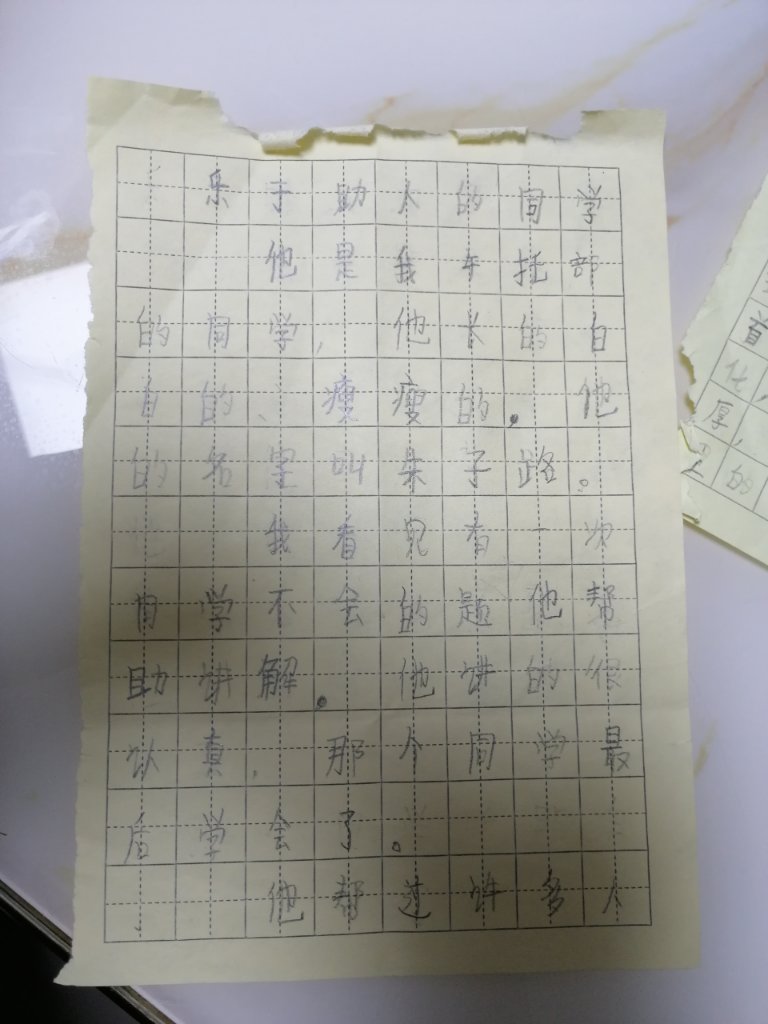 乐于助人的同学
他是我午托部
的同学，他长的白
白的、瘦瘦的。他
的名字叫朱子路。
我看见有一次
同学不会的题他帮
助讲解。他讲的很
认真，那个同学最
后学会了。
他帮过讲多人
首
化，
厚，
的